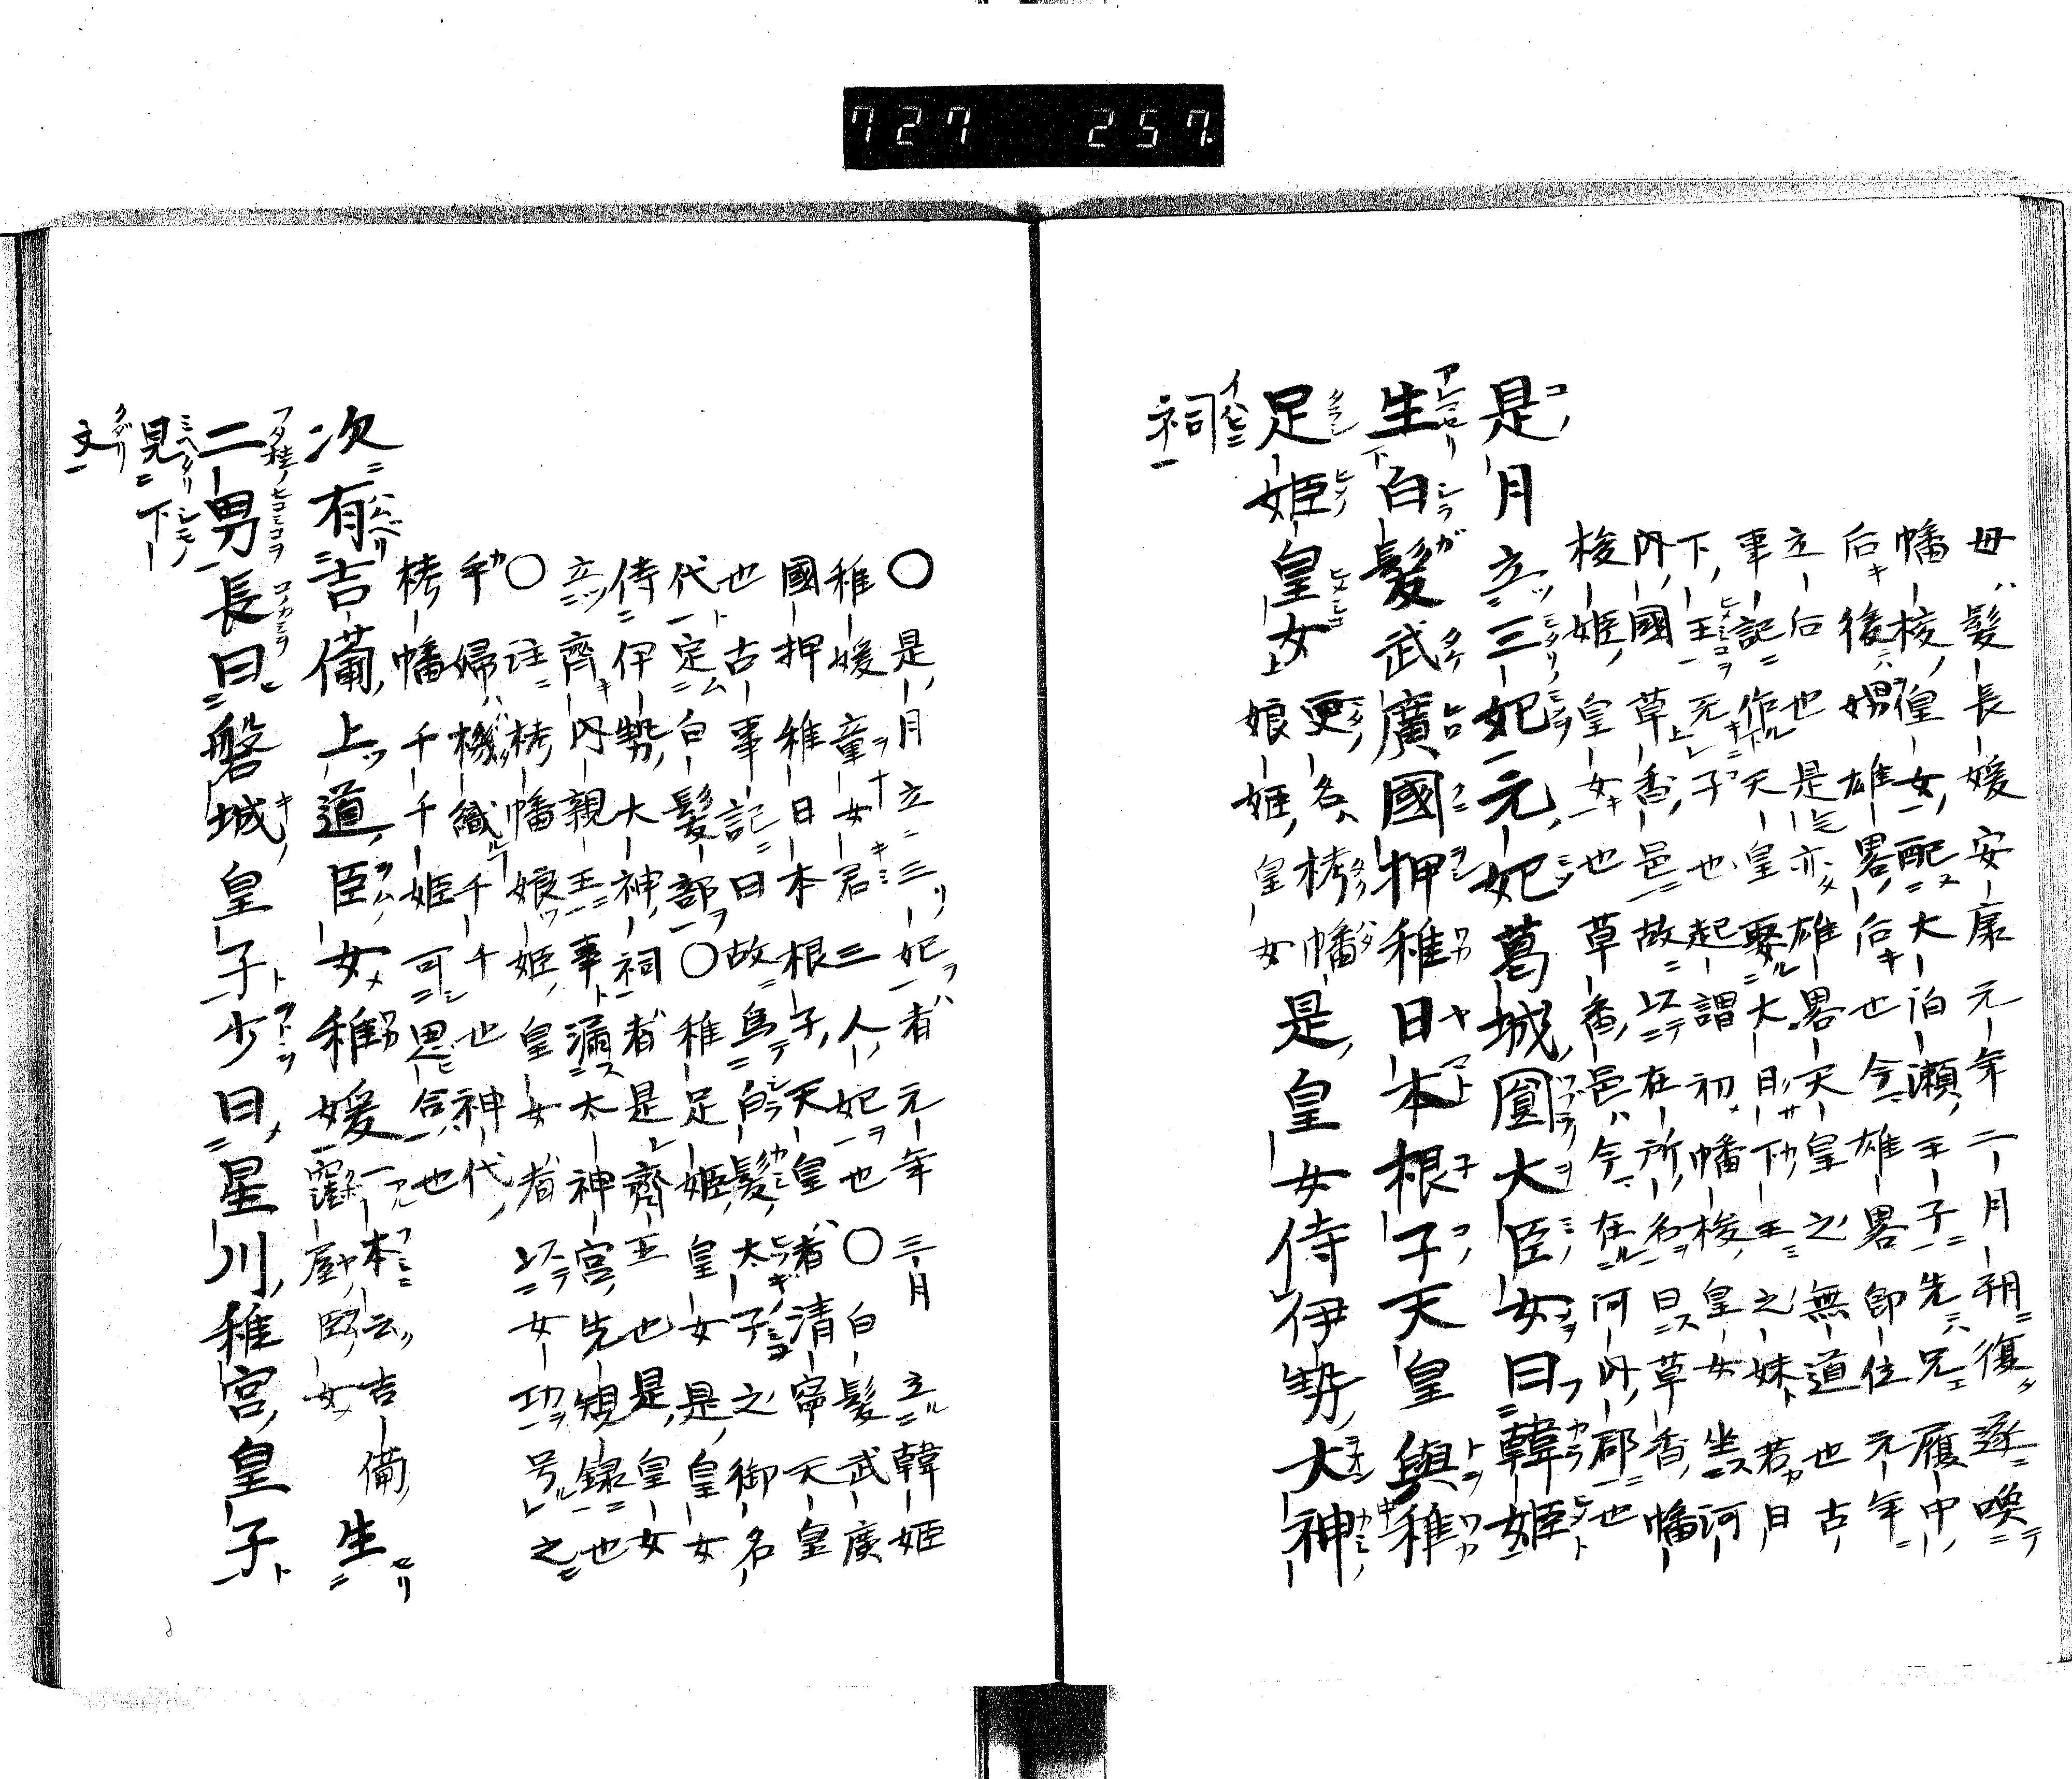 727 257
母髮長媛安康元年二月朔復遂喚
幡梭皇女配大泊瀬王子先兄履中
后後娚雄畧后也今雄畧即位元年
立后也是亦雄畧天皇之無道也古
事記作天皇娶大日下王之妹若日
下王无子也起謂初幡梭皇女坐河
内國草香邑故以在所名曰草香幡
梭姫皇女也草香邑今在河内郡也
是月立三妃元妃葛城圓大臣女曰韓姫
生白髮武廣國押稚日本根子天皇與稚
足姫皇女更名栲幡娘姫皇女是皇女侍伊勢大神
祠
○是月立三妃者元年三月立韓姫
稚媛童女君三人妃也○白髮武廣
國押稚日本根子天皇者清寧天皇
也古事記曰故為白髮太子之御名
代定白髮部○稚足姫皇女是皇女
侍伊勢大神祠者是齊王也是皇女
立齊内親王事漏太神宮先規録也
○註栲幡娘姫皇女者以女功号之
乎婦機織千千也神代
栲幡千千姫可思合也
次有吉備上道臣女稚媛一本云吉備窪屋臣女生
二男長曰磐城皇子少曰星川稚宮皇子
見下
文